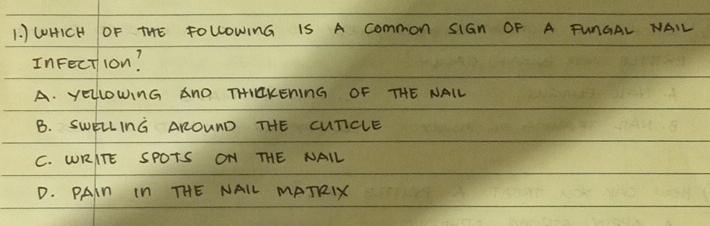 1.) WHICH OF THE FOLLOWING IS A COMMON SIGN OF A FUNGAL NAIL
INFECTION?
A. YELLOWING AND THICKENING OF THE NAIL
B. SWELLING AROUND THE CUTICLE
C. WRITE SPOTS ON THE NAIL
D. PAIN IN THE NAIL MATRIX